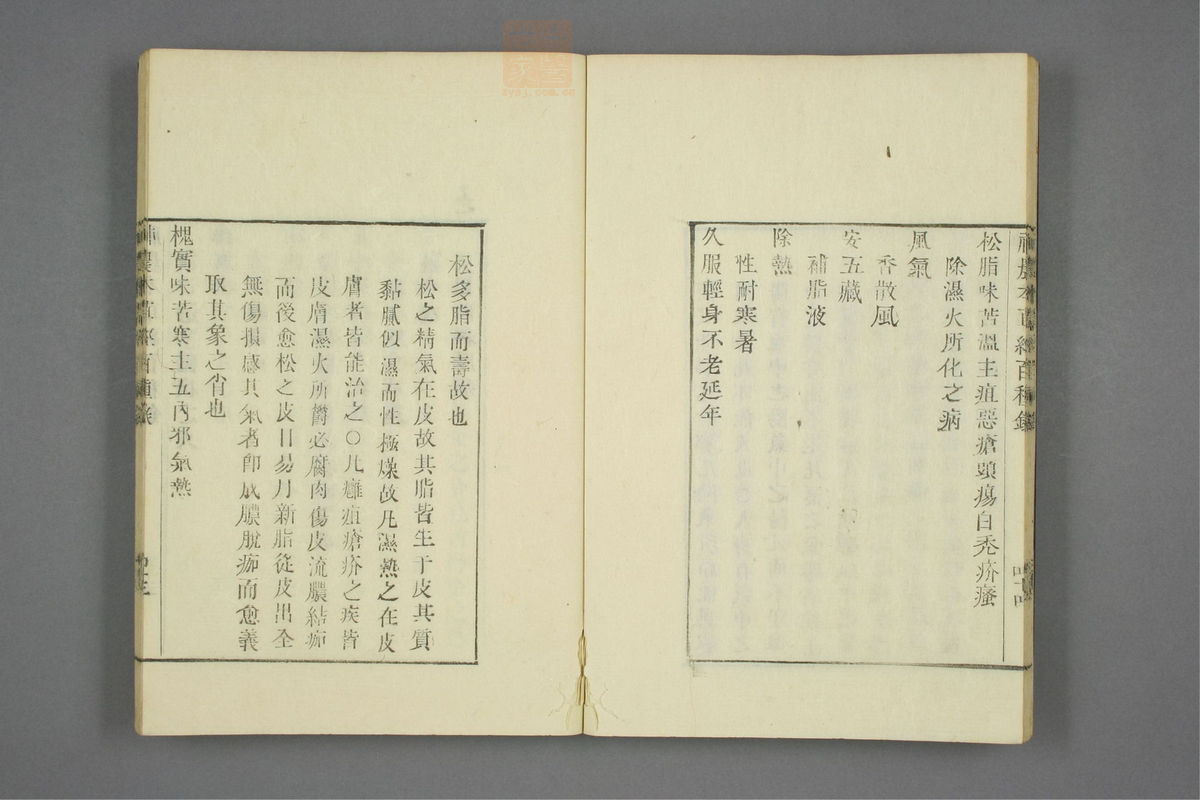 神農本草經百種錄
松脂味苦溫主疽惡瘡頭瘍白禿疥瘙
除濕火所化之病
風氣
香散風
安五藏
補脂液
除熱
性耐寒暑
久服輕身不老延年
松多脂而壽故也
松之精氣在皮故其脂皆生于皮其質
黏膩似濕而性極燥故凡濕熱之在皮
膚者皆能治之○凡癰疽瘡疥之疾皆
皮膚濕火所鬱必腐肉傷皮流膿結痂
而後愈松之皮日易月新脂從皮出全
無傷損感其氣者卽成膿脫痂而愈義
取其象之肖也
槐實味苦寒主五內邪氣熱
神農本草經百種錄
sysj.com.cn